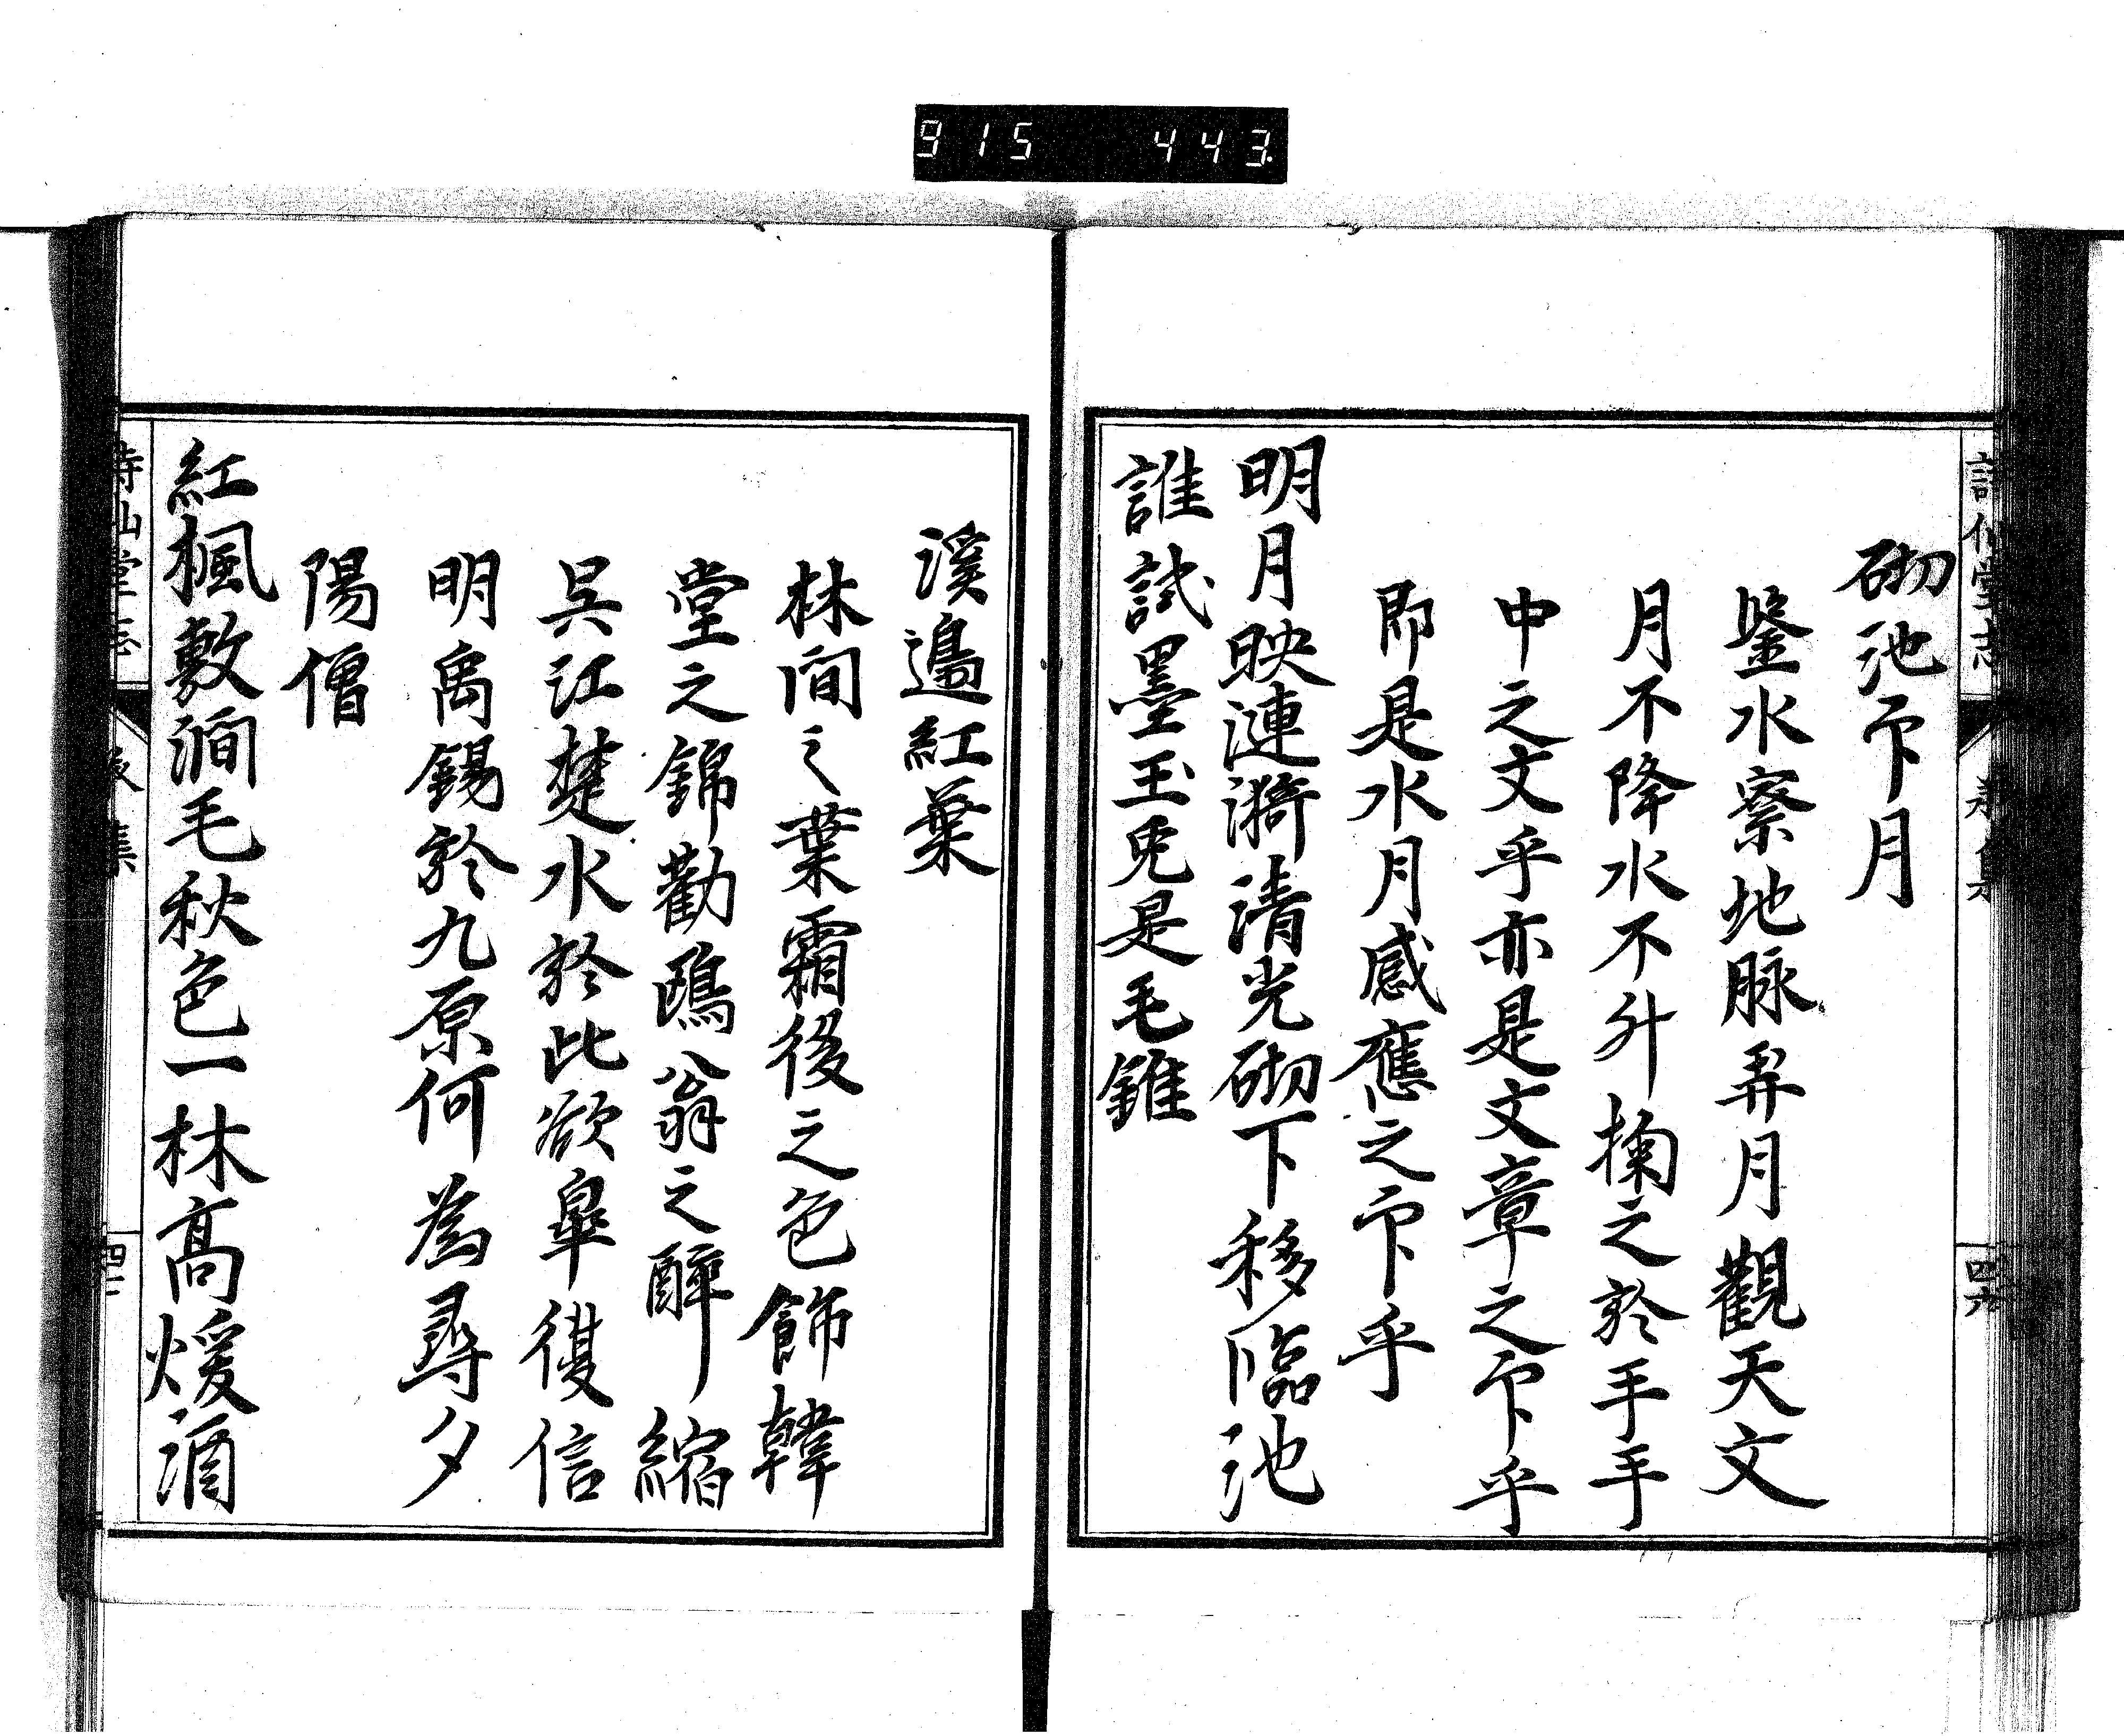 915 443
砌池印月
鑒水察地脉弄月觀天文
月不降水不升掬之於手手
中之文乎亦是文章之印乎
即是水月感應之印乎
明月映漣漪清光砌下移臨池
誰試墨玉兎是毛錐
溪邊紅葉
林間之葉霜後之色飾韓
堂之錦勸鷗翁之醉縮
吳江楚水於此欲皐復信
明禹錫於九原何為尋夕
陽僧
紅楓敷澗毛秋色一林高煖酒
四六